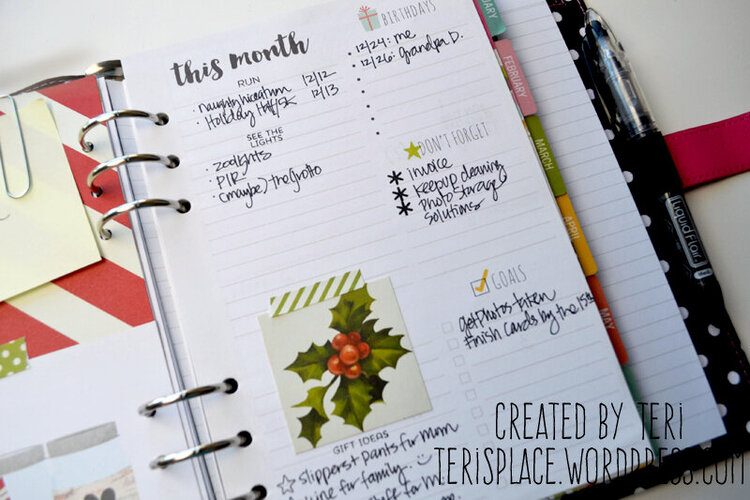 this month
RUN
· naughty
12/12
· Holiday Half/5K 12/13
SEE THE
LIGHTS
· zoolights
· PIR
· (maybe) the Grotto
BIRTHDAYS
· 12/24: me
· 12/26: grandpa D.
DON'T FORGET
* invoice
* keep up cleaning
* photo storage
solutions
GOALS
get photos taken
finish cards by the 15th
GIFT IDEAS
☆ slippers + pants for mom
wine for family.
for
FEBRUARY
MARCH
APRIL
MAY
Liquid Flair
CREATED BY TERI
TERISPLACE.WORDPRESS.COM